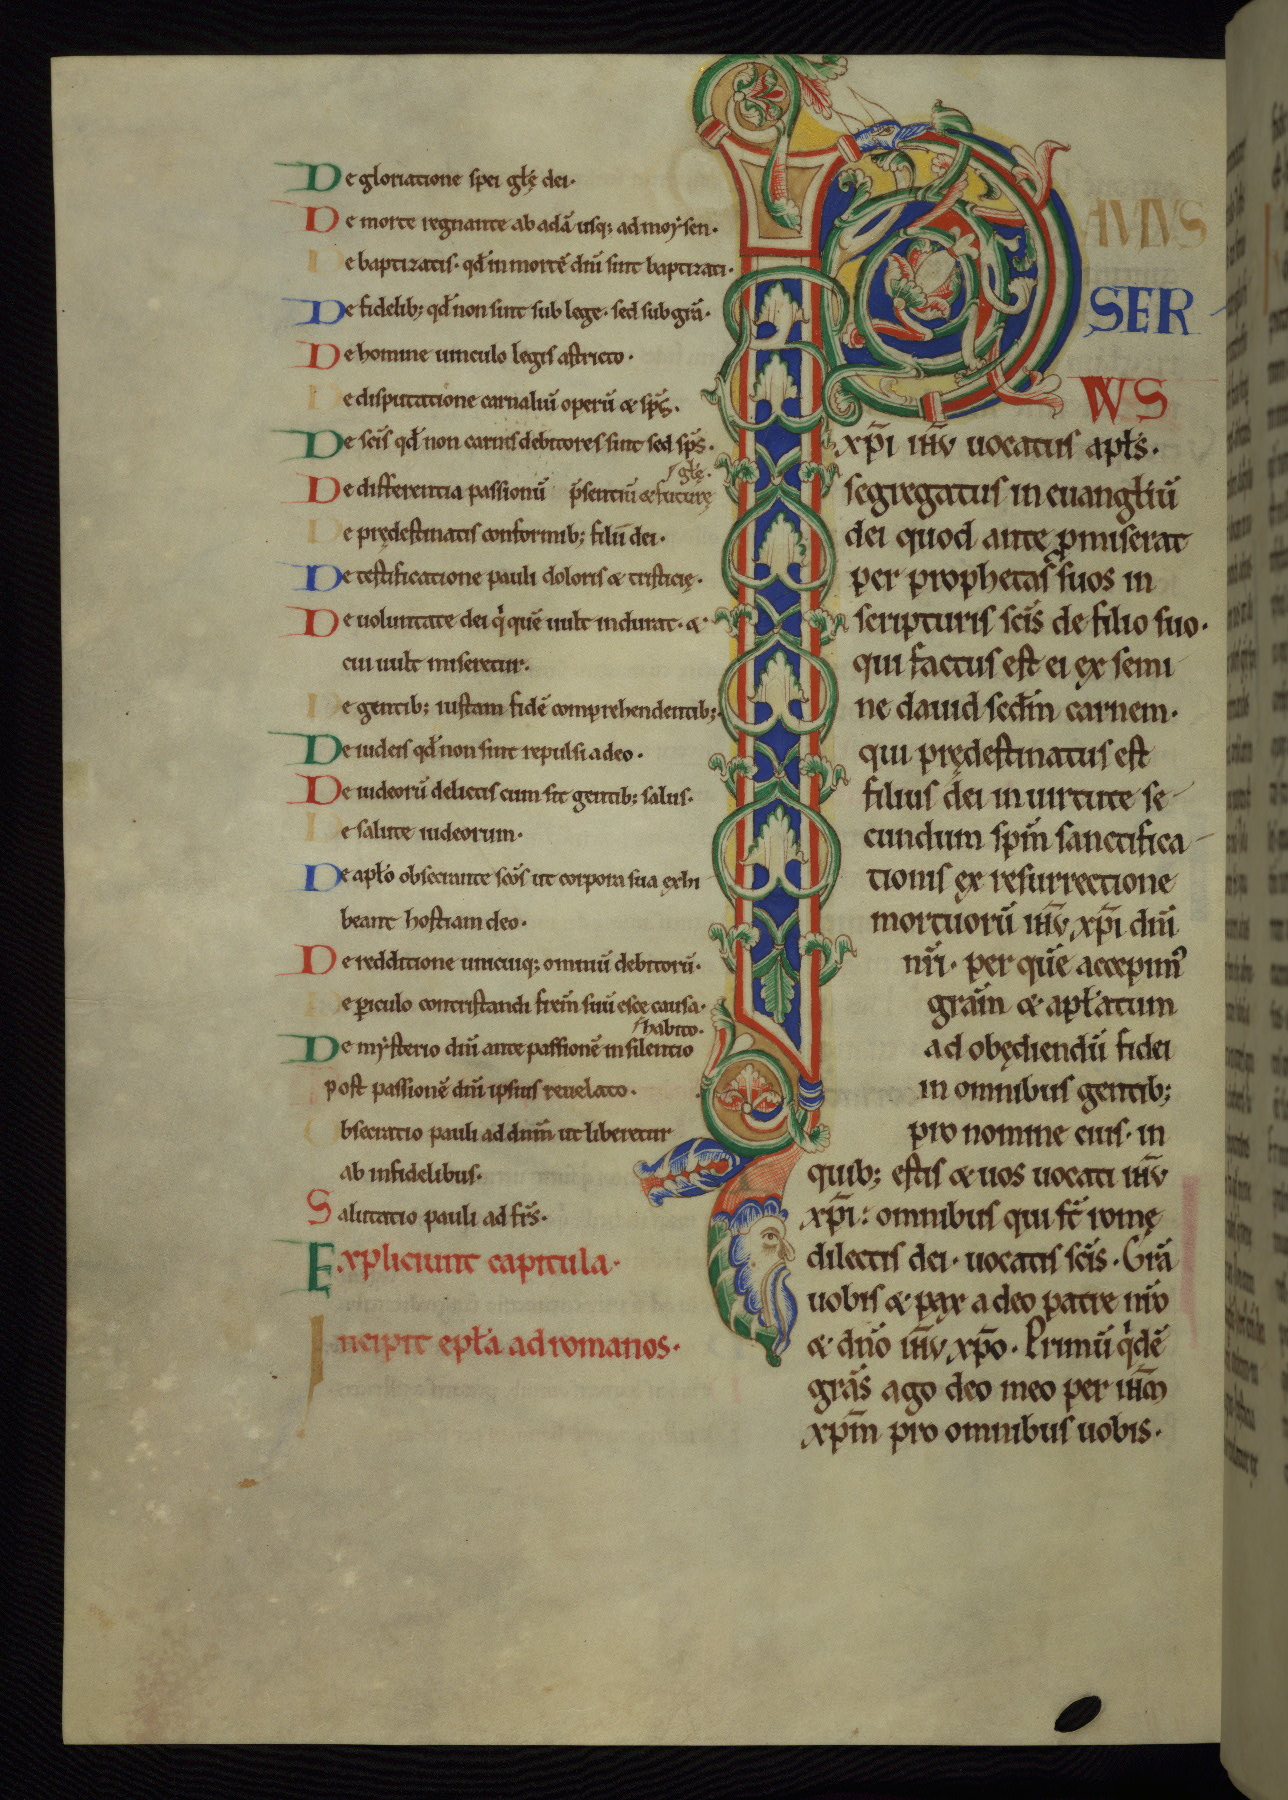 De gloriatione spei glę dei·
De morte regnante ab adā usq; ad moẏsen·
De baptizatis· qđ in mortē dnī sint baptizati·
De fidelib; qđ non sint sub lege· sed sub grā·
De homine uinculo legis astricto·
De disputatione carnaliū operū & sp̄s·
De sc̄is qđ non carnis debitores sint sed sp̄s·
De differentia passionū p̄sentiū & futurę glę·
De prędestinatis conformib; filiī dei·
De testificatione pauli doloris & tristicię·
De uoluntate dei qͥ quē uult indurat· &
cui uult miseretur·
De gentib; iustam fidē comprehendentib;
De iudeis qđ non sint repulsi a deo·
De iudeorū delictis cum sit gentib; salus·
De salute iudeorum·
De apłō obsecrante sc̄ōs ut corpora sua exhi
beant hostiam deo·
De redditione unicuiq; omniū debitorū·
De ꝑiculo contristandi frēm suū escę causa·
De mẏsterio dnī ante passionē in silentio habito·
post passionē dnī ipsius reuelato·
Obsecratio pauli ad dnm̄ ut liberetur
ab infidelibus·
Salutatio pauli ad frs̄·
Expliciunt capitula·
Incipit epła ad romanos·
PAULUS
SER
VVS
xp̄i ih̄u uocatus apłs·
segregatus in euangłiū
dei quod ante ꝓmiserat
per prophetas suos in
scripturis sc̄is de filio suo·
qui factus est ei ex semi
ne dauid sedm̄ carnem·
qui prędestinatus est
filius dei in uirtute se
cundum sp̄m sanctifica
tionis ex resurrectione
mortuorū ih̄u xp̄i dnī
nr̄i· per quē accepim᾽
grām & apłatum
ad obędiendū fidei
in omnibus gentib;
pro nomine eius· in
quib; estis & uos uocati ih̄u
xp̄i: omnibus qui st̄ romę
dilectis dei· uocatis sc̄is· Grā
uobis & pax a deo patre nr̄o
& dn̄o ih̄u xp̄o· Primū qͥdē
grās ago deo meo per ih̄m
xp̄m pro omnibus uobis·